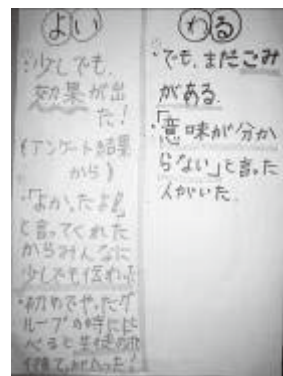 よい
・少しでも、
効果が出
た!
(アンケート結果
から)
・「よかったよ」
と言ってくれた
からみんなに
少しでも伝わった
・初めてやったグ
ループの時に比
べると生徒の
わるい
・でも、まだごみ
がある。
・「意味が分か
らない」と言った
人がいた。